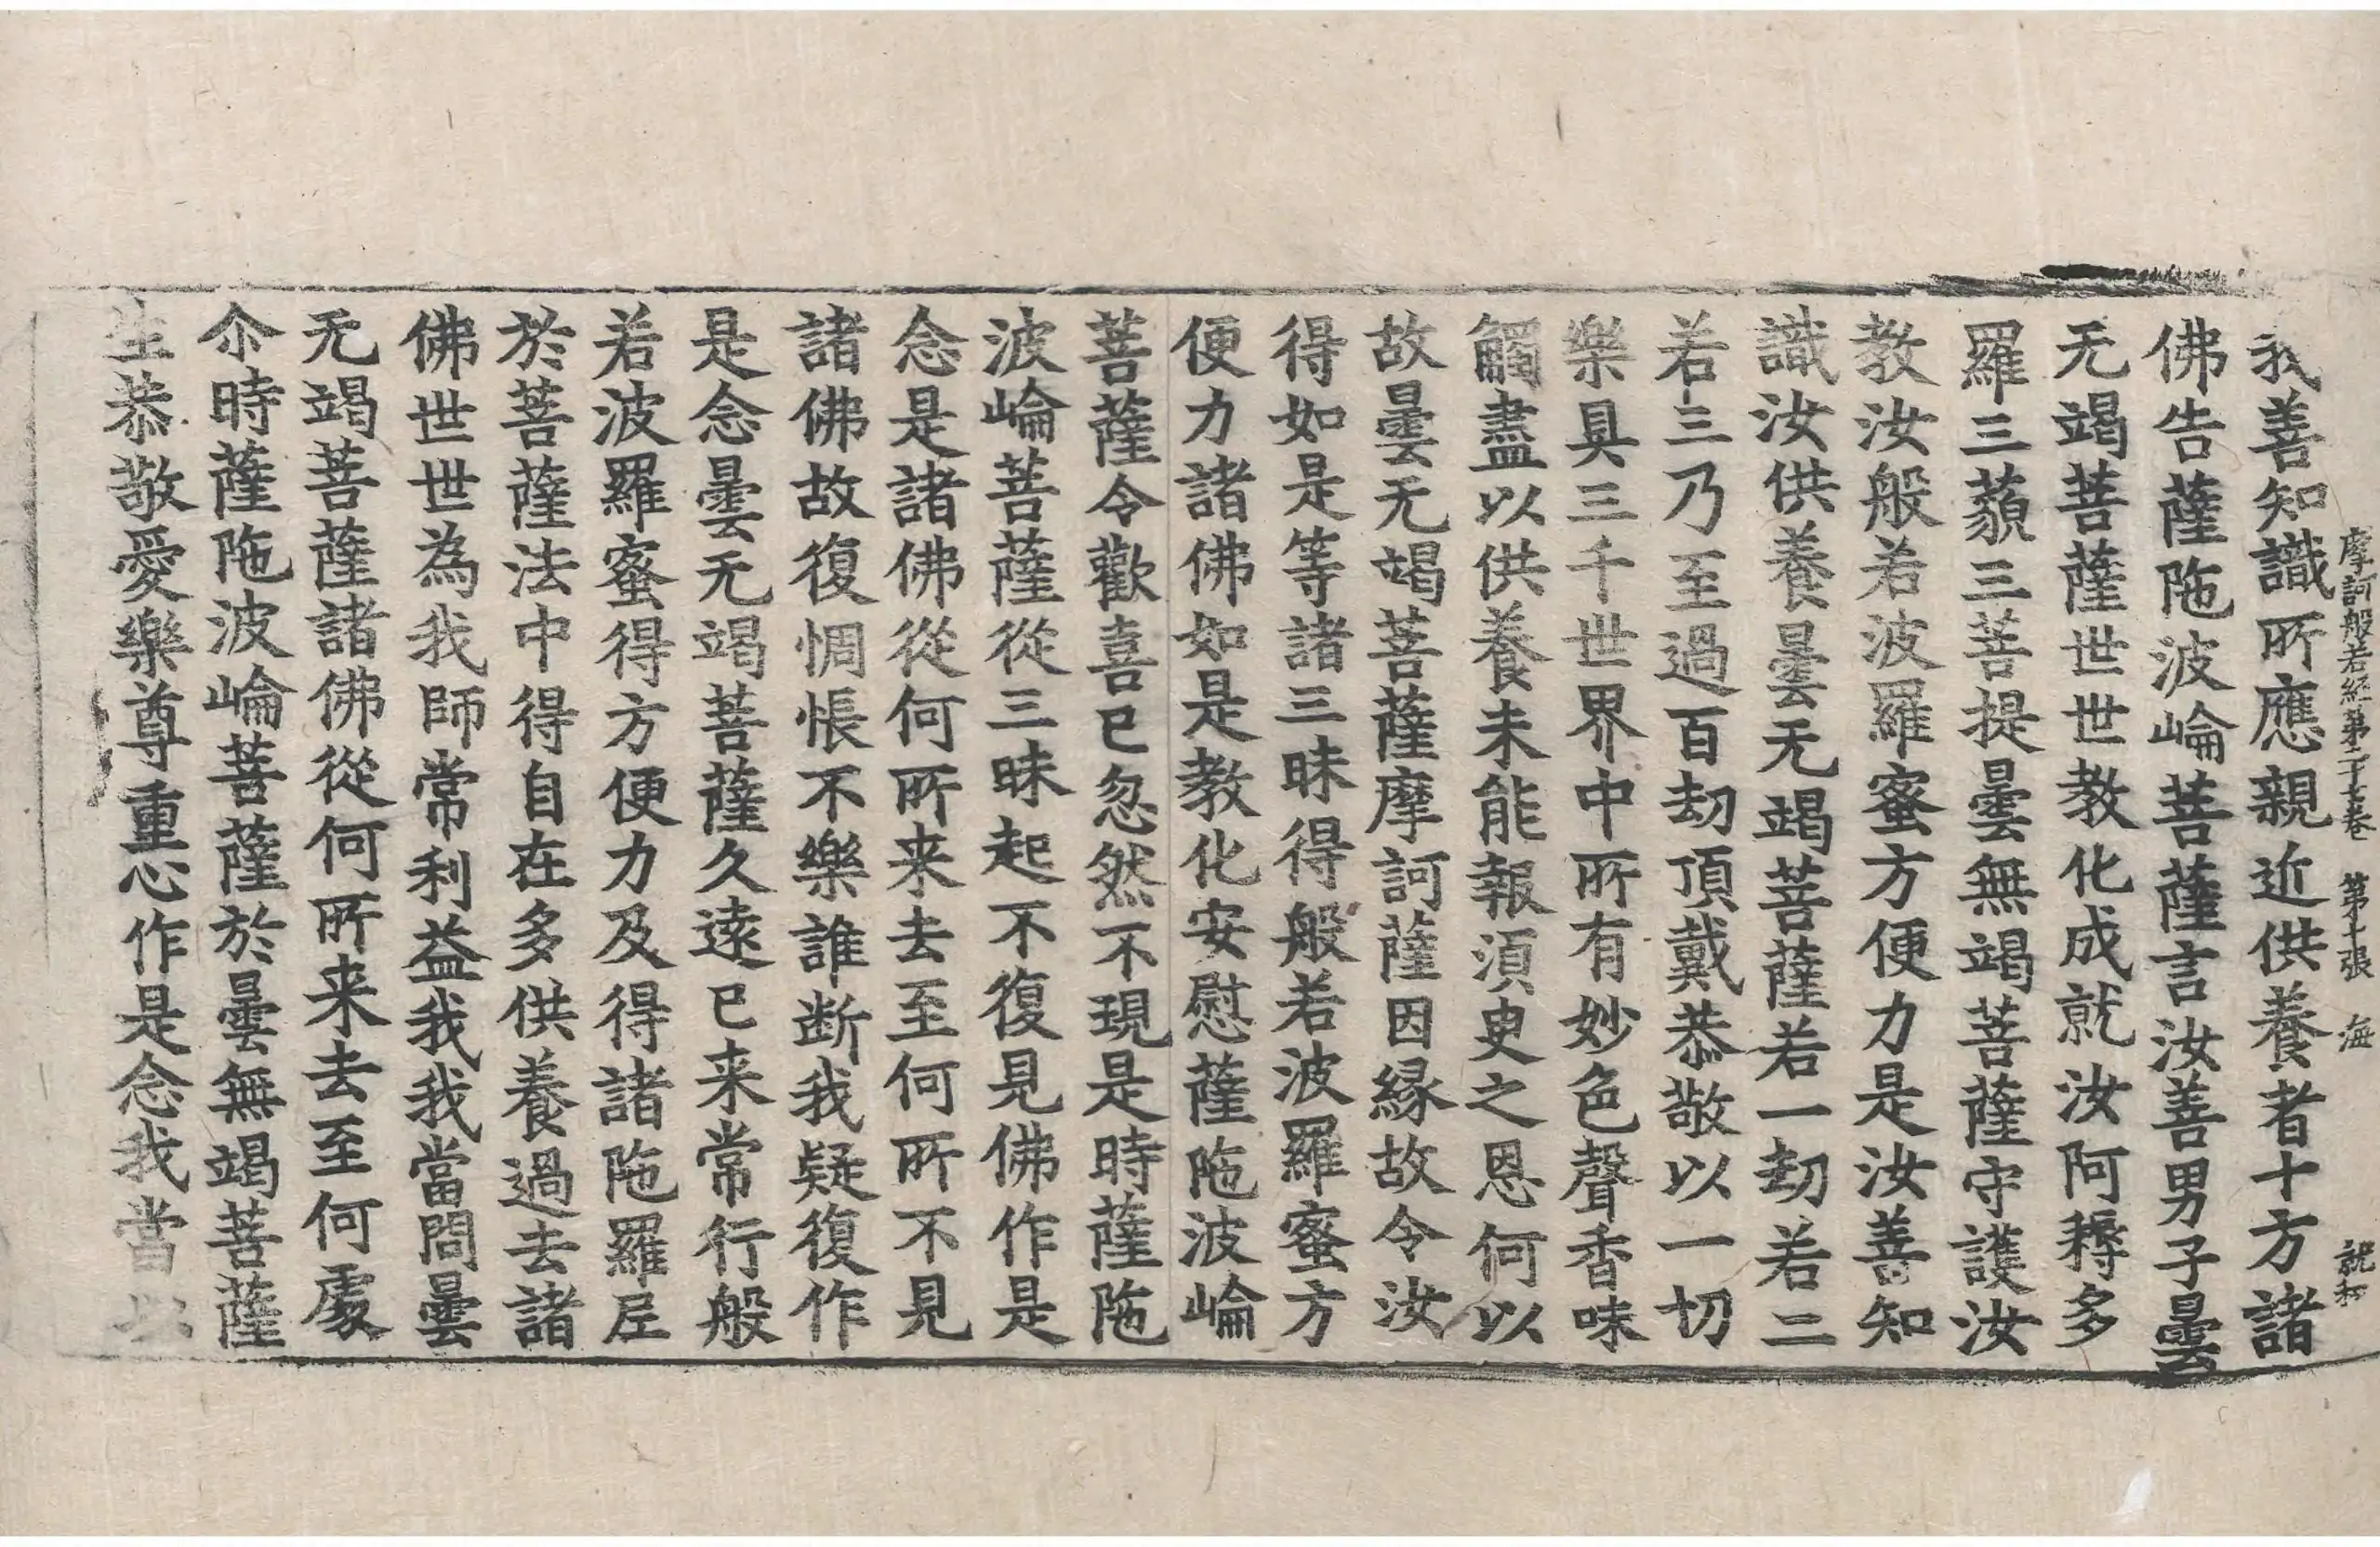 摩訶般若經第二十七卷 第十張 海
我善知識所應親近供養者十方諸
佛告薩陁波崘菩薩言汝善男子曇
无竭菩薩世世教化成就汝阿耨多
羅三藐三菩提曇無竭菩薩守護汝
教汝般若波羅蜜方便力是汝善知
識汝供養曇无竭菩薩若一劫若二
若三乃至過百劫頂戴恭敬以一切
樂具三千世界中所有妙色聲香味
觸盡以供養未能報須臾之恩何以
故曇无竭菩薩摩訶薩因縁故令汝
得如是等諸三昧得般若波羅蜜方
便力諸佛如是教化安慰薩陁波崘
菩薩令歡喜已忽然不現是時薩陁
波崘菩薩從三昧起不復見佛作是
念是諸佛從何所来去至何所不見
諸佛故復惆悵不樂誰断我疑復作
是念曇无竭菩薩久遠已来常行般
若波羅蜜得方便力及得諸陁羅尼
於菩薩法中得自在多供養過去諸
佛世世為我師常利益我我當問曇
无竭菩薩諸佛從何所来去至何處
尒時薩陁波崘菩薩於曇無竭菩薩
生恭敬愛樂尊重心作是念我當